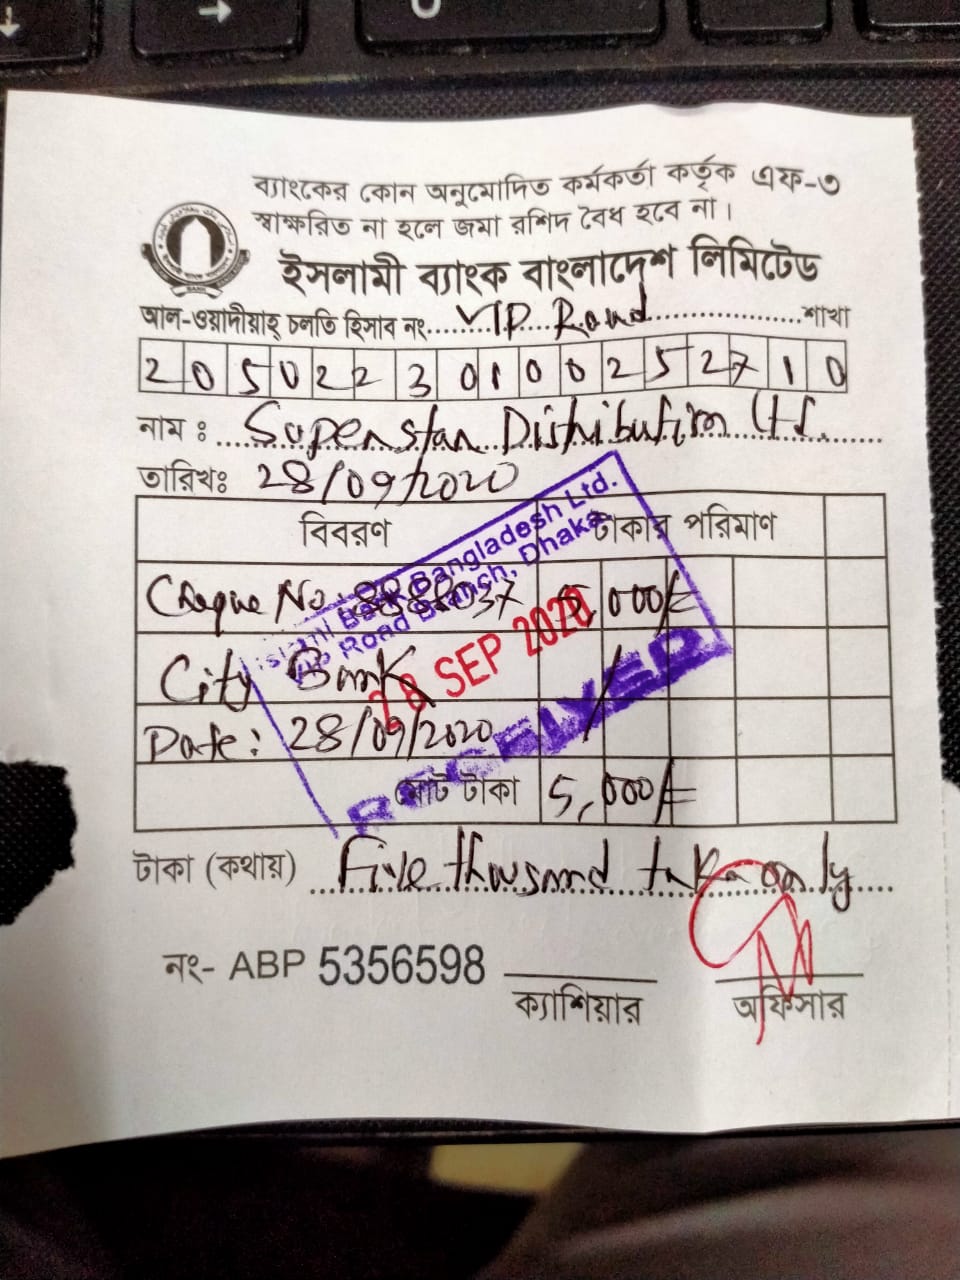 ব্যাংকের কোন অনুমোদিত কর্মকর্তা কর্তৃক এফ-৩
স্বাক্ষরিত না হলে জমা রশিদ বৈধ হবে না।
ইসলামী ব্যাংক বাংলাদেশ লিমিটেড
আল-ওয়াদীয়াহ্ চলতি হিসাব নং.....VIP Road.....শাখা
2 0 5 0 2 2 3 0 1 0 0 2 5 2 7 1 0
নাম : Superstar Distribution Ltd.
তারিখঃ 28/09/2020
বিবরণ টাকার পরিমাণ
Cheque No: 5,000/=
City Bank
Date: 28/09/2020
মোট টাকা 5,000/=
Bank Bangladesh Ltd.
VIP Road Branch, Dhaka.
28 SEP 2020
RECEIVED
টাকা (কথায়) Five thousand taka only
নং- ABP 5356598
ক্যাশিয়ার অফিসার